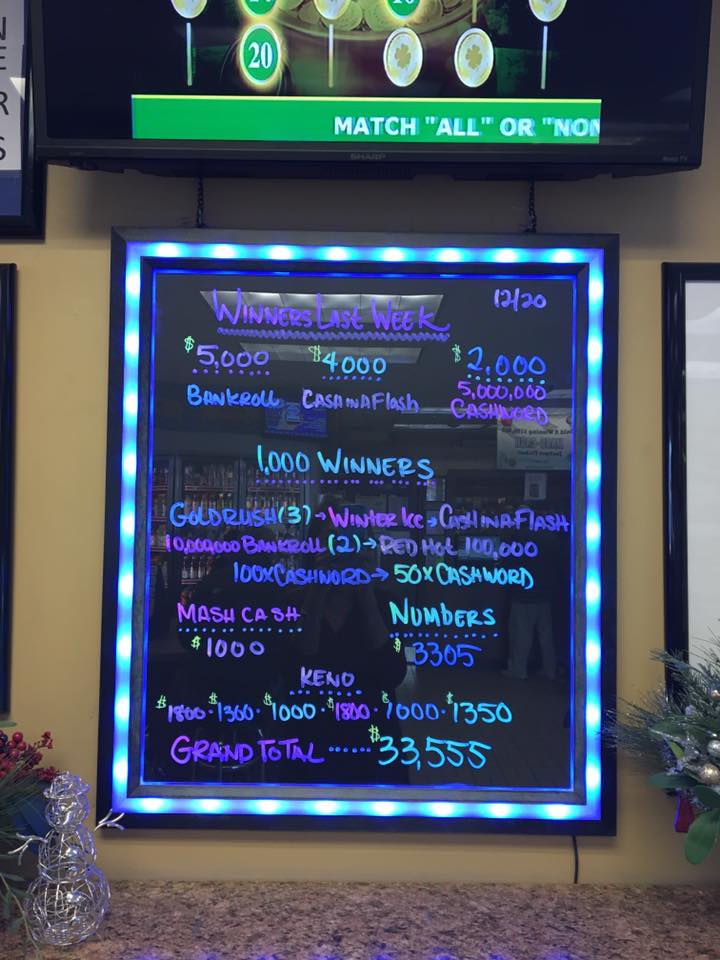 20
MATCH "ALL" OR "NON
SHARP
Roku TV
WINNERS LAST WEEK 12/20
$5,000 $4000 $2,000
BANKROLL CASH IN A FLASH 5,000,000
CASHWORD
1,000 WINNERS
GOLDRUSH (3) → WINTER ICE → CASH IN A FLASH
10,000,000 BANKROLL (2) → RED HOT 100,000
100X CASHWORD → 50X CASHWORD
MASH CASH NUMBERS
$1000 $3305
KENO
$1800 · $1300 · $1000 · $1800 · $1000 · $1350
GRAND TOTAL ...... $33,555